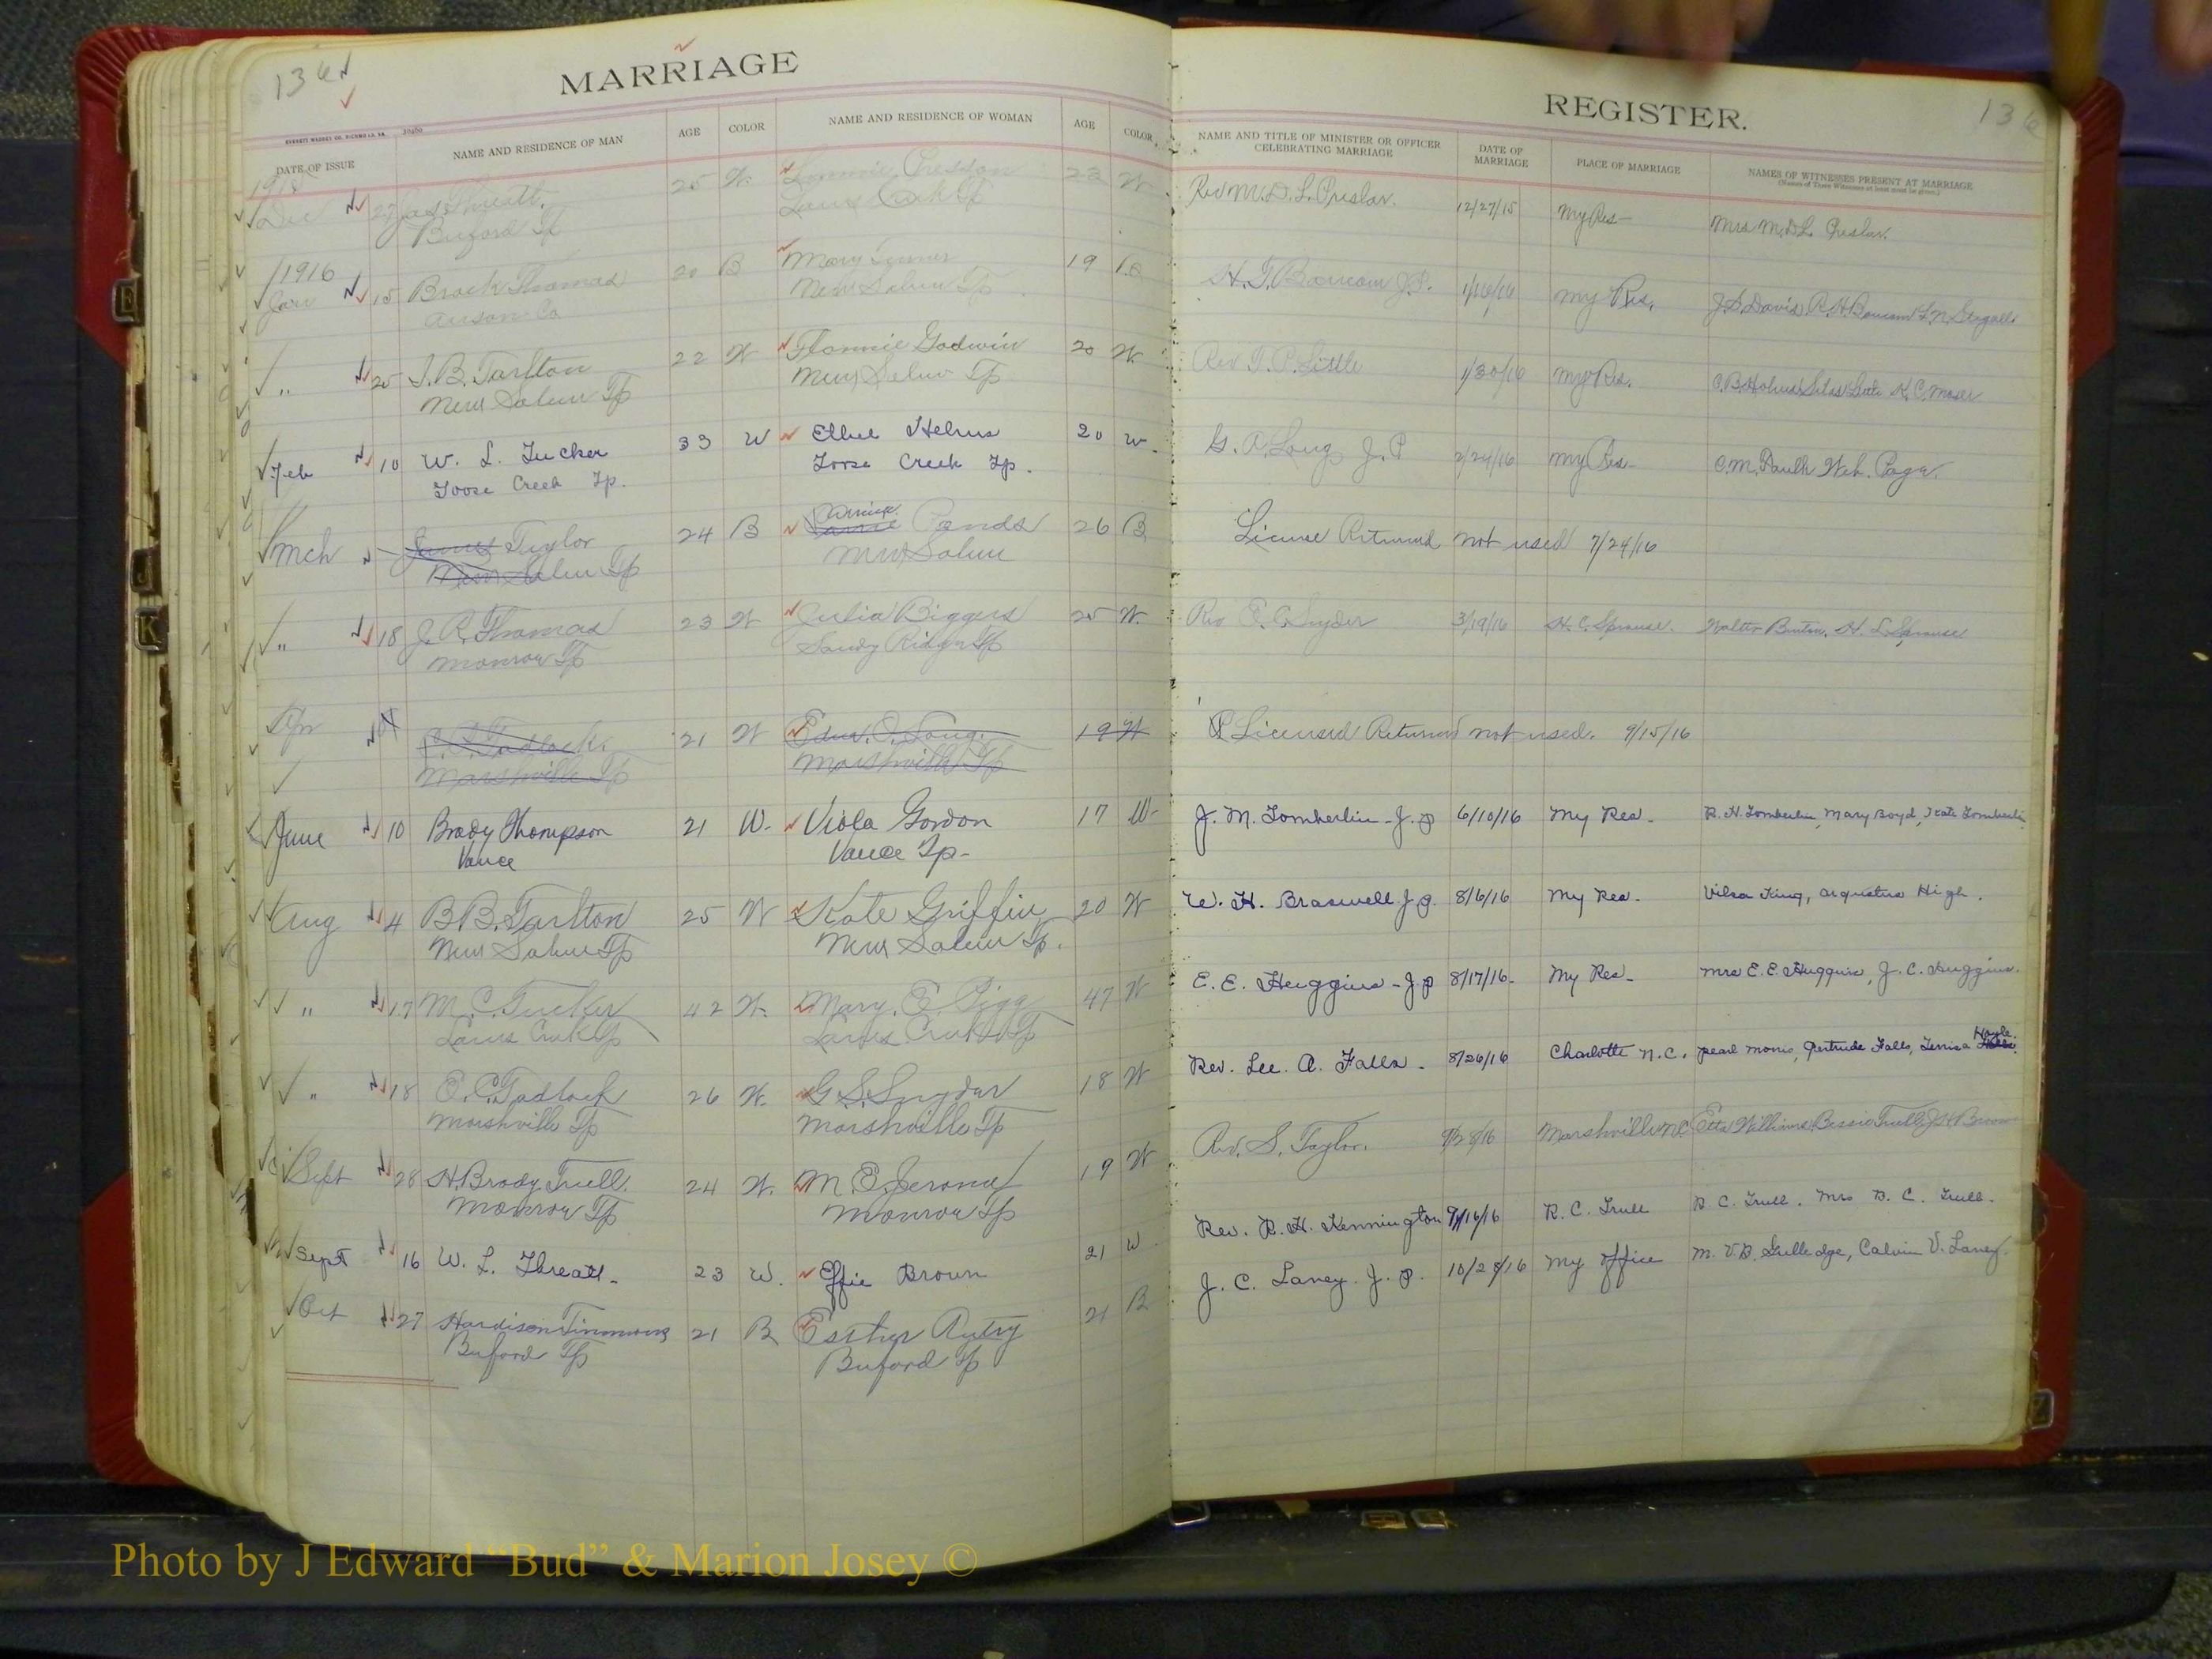 136
MARRIAGE
EVERETT WADDEY CO. RICHMOND, VA.
DATE OF ISSUE
NAME AND RESIDENCE OF MAN
AGE
COLOR
NAME AND RESIDENCE OF WOMAN
AGE
COLOR
REGISTER.
136
NAME AND TITLE OF MINISTER OR OFFICER
CELEBRATING MARRIAGE
DATE OF
MARRIAGE
PLACE OF MARRIAGE
NAMES OF WITNESSES PRESENT AT MARRIAGE
(Names of Three Witnesses at least must be given.)
1915
Dec 27 Jas Threatt. 25 W. Presson 23 W. Rev M. D. L. Preslar. 12/27/15 My Res- Mrs M. D. L. Preslar.
Buford Tp Lanes Creek Tp
1916
Jany 15 Brock Thomas 20 B Mary Turner 19 B H. T. Baucom J.P. 1/16/16 My Res. J. S. Davis
Anson Co New Salem Tp
" 25 J. B. Tarlton 22 W Flonnie Godwin 20 W Rev Little 1/30/16 My Res.
New Salem Tp New Salem Tp
Feb 10 W. L. Tucker 33 W Ethel Helms 20 W. G. A. Long J. P 2/24/16 My Res-
Goose Creek Tp. Goose Creek Tp.
Mch James Taylor 24 B Ponds 26 B License Returned not used 7/24/16
New Salem Tp New Salem
" 18 J. R. Thomas 23 W Julia Biggers 25 W. Rev E. C. Snyder 3/19/16 H. C. Sprouse.
Monroe Tp Sandy Ridge Tp
Apr Tadlock. 21 W Edna. O. Long. 19 W Licensed Returned not used. 9/15/16
Marshville Tp Marshville Tp
June 10 Brady Thompson 21 W. Viola Gordon 17 W- J. M. Lomberlin - J. P 6/10/16 My Res. R. H. Lomberlin, Mary Boyd, Kate Lomberlin
Vance Vance Tp-
Aug 4 B. B. Tarlton 25 W Kate Griffin 20 W W. H. Braswell J. P. 8/6/16 My Res. King, High.
New Salem Tp New Salem Tp.
" 17 M. C. Tucker 42 W. Mary. E. Pigg 47 W E. E. Huggins - J. P 8/17/16- My Res- Mrs E. E. Huggins, J. C. Huggins.
Lanes Creek Tp Lanes Creek Tp
" 18 E. C. Tadlock 26 W. G. S. Snyder 18 W Rev. Lee. A. Falls. 8/20/16 Charlotte N.C. Pearl Morris, Gertrude Falls, Hoyle
Marshville Tp Marshville Tp
Sept 28 H. Brady Trull. 24 W. M. E. Jerome 19 W Rev. S. Taylor. 9/28/16 Marshville NC Etta Williams, Bessie Trull,
Monroe Tp Monroe Tp
Sept 16 W. L. Threatt- 23 W. Effie Brown 21 W Rev. R. H. Kennington 9/16/16 R. C. Trull R. C. Trull. Mrs R. C. Trull.
Oct 27 Hardison Timmons 21 B Esther Autry 21 B J. C. Laney. J. P. 10/28/16 My office M. V. B. Gulledge, Calvin V. Laney.
Buford Tp Buford Tp
Photo by J Edward “Bud” & Marion Josey ©